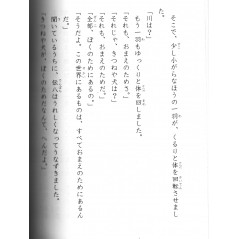 そこで、少し小がらなほうの一羽が、くるりと体を回転させまし
た。
「川は？」
もう一羽もゆっくりと体を回しました。
「それも、おまえのためさ。」
「それじゃ、きつねや犬は？」
「それも、おまえのためだ。」
「全部、ぼくのためにあるの。」
「そうだよ。この世界にあるものは、すべておまえのためにあるん
だ。」
聞いているうちに、弥八はうれしくなってうなずきました。
「きつねや犬が、ぼくのためだなんて、へんだよ。」